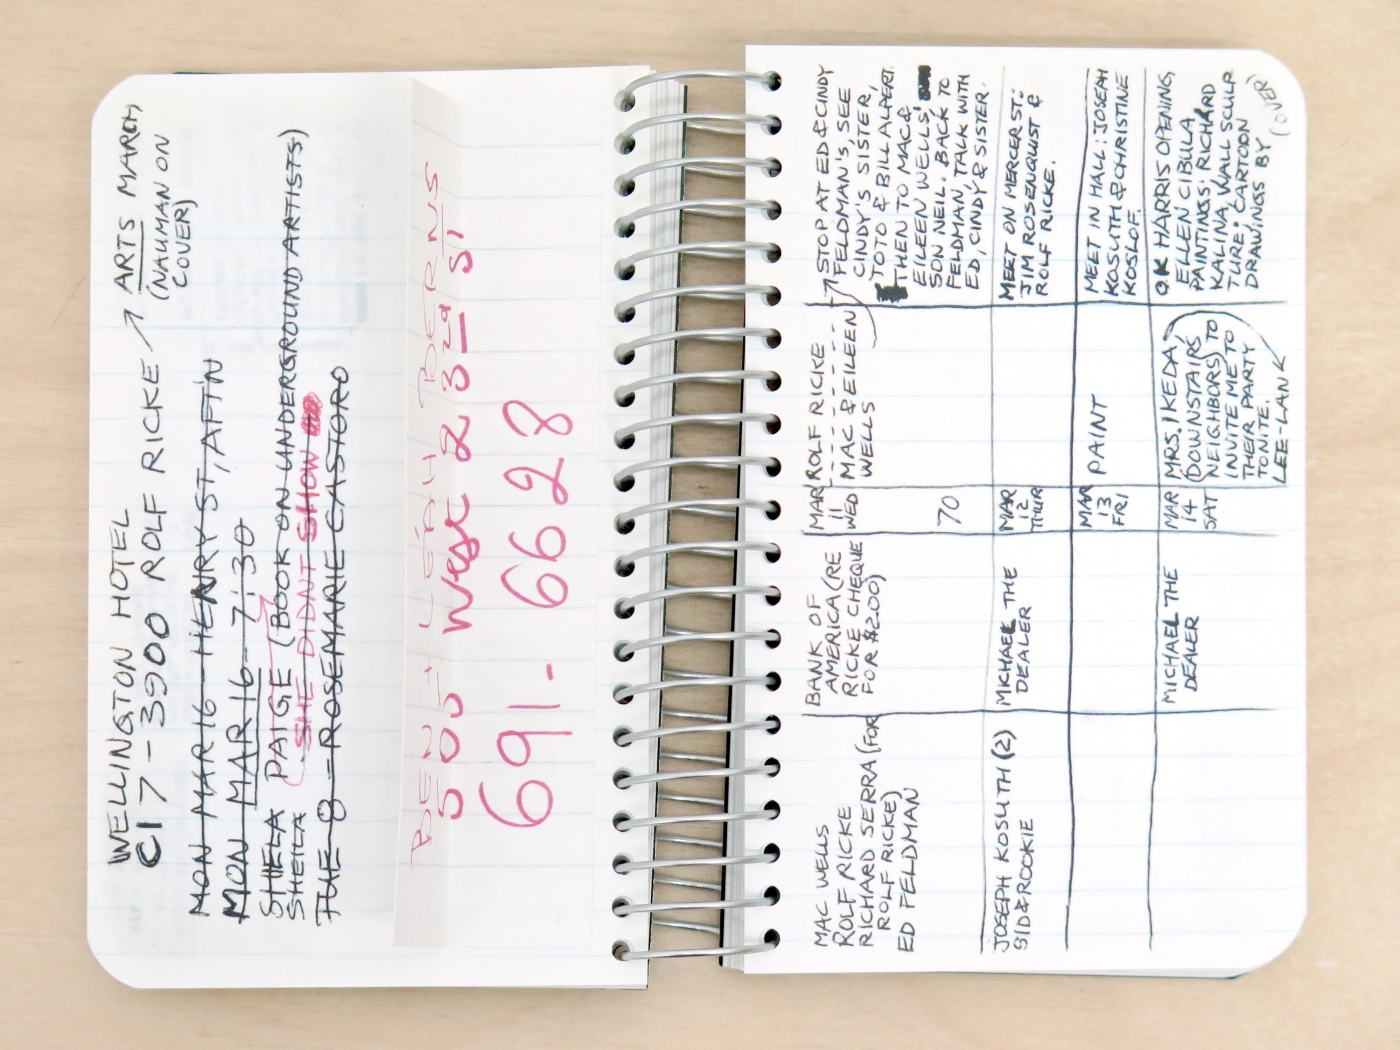 WELLINGTON HOTEL
CI 7-3900 ROLF RICKE → ARTS MARCH
(NAUMAN ON
COVER)
MON MAR 16 - HENRY ST, AFT'N
MON MAR 16 - 7:30
SHEILA PAIGE (BOOK ON UNDERGROUND ARTISTS)
SHEILA SHE DIDNT SHOW
TUE 8 - ROSEMARIE CASTORO
BEN & LEAH BERNS
505 West 23rd St
691-6628
MAC WELLS
ROLF RICKE
RICHARD SERRA (FOR
ROLF RICKE)
ED FELDMAN
BANK OF
AMERICA (RE
RICKE CHEQUE
FOR $200)
MAR
11
WED
70
ROLF RICKE
MAC & EILEEN
WELLS
STOP AT ED & CINDY
FELDMAN'S, SEE
CINDY'S SISTER,
TOTO & BILL ALPERT.
THEN TO MAC &
EILEEN WELLS'
SON NEIL. BACK TO
FELDMAN, TALK WITH
ED, CINDY & SISTER.
JOSEPH KOSUTH (2)
SID & ROOKIE
MICHAEL THE
DEALER
MAR
12
THUR
MEET ON MERCER ST:
JIM ROSENQUIST &
ROLF RICKE.
MAR
13
FRI
PAINT
MEET IN HALL: JOSEPH
KOSUTH & CHRISTINE
KOSLOF.
MICHAEL THE
DEALER
MAR
14
SAT
MRS. IKEDA
(DOWNSTAIRS
NEIGHBORS) TO
INVITE ME TO
THEIR PARTY
TONITE.
LEE-LAN
OK HARRIS OPENING,
ELLEN CIBULA
PAINTINGS: RICHARD
KALINA, WALL SCULP
TURE: CARTOON
DRAWINGS BY (OVER)